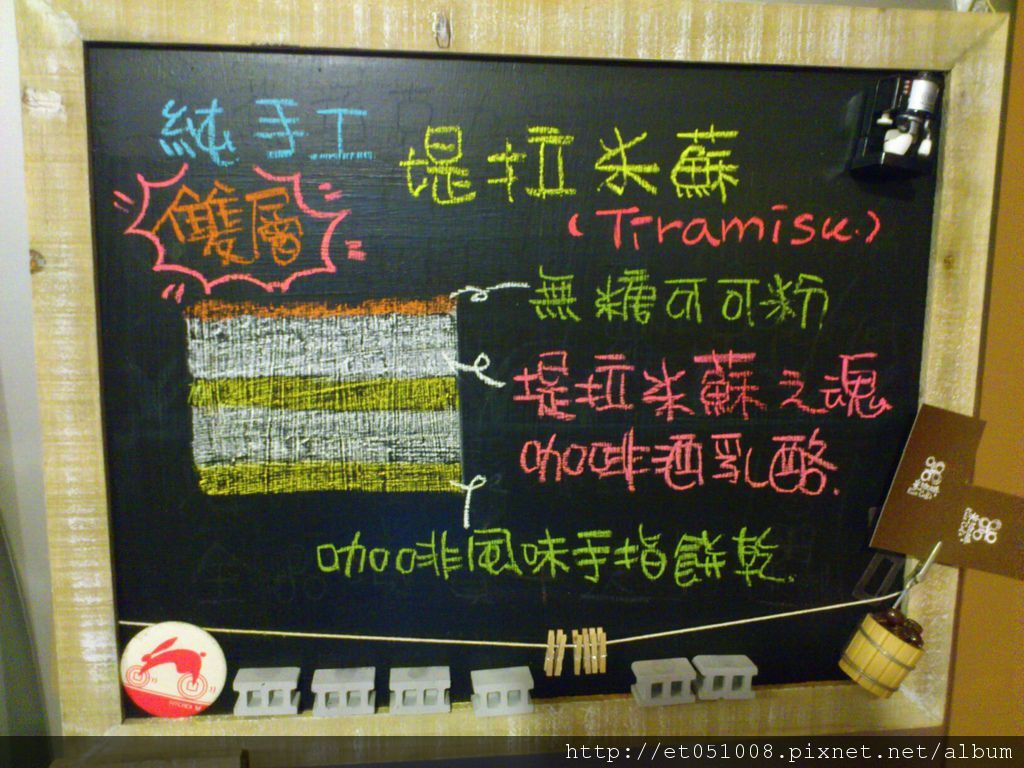 純手工
雙層
堤拉米蘇
(Tiramisu.)
無糖可可粉
堤拉米蘇之魂
咖啡酒乳酪.
咖啡風味手指餅乾.
http://et051008.pixnet.net/album